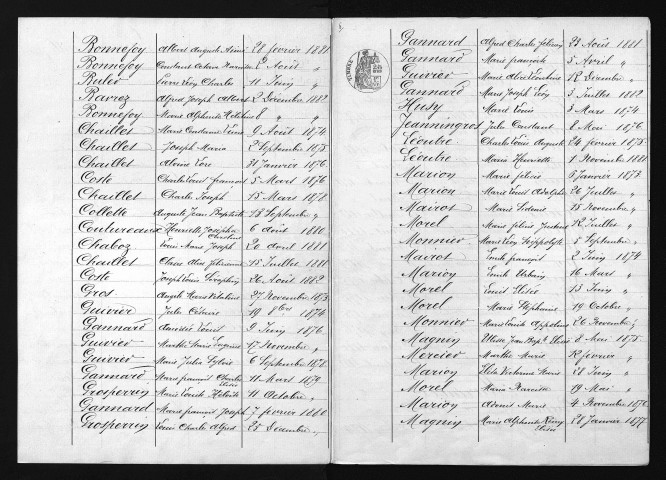 Bonnefoy Albert Auguste Aimé 28 février 1881
Bonnefoy Constant Octave 2 Août "
Rulet Pierre Léon Charles 11 Juin "
Ravrez Alfred Joseph Albert 2 Décembre 1882
Bonnefoy Marie Alphonse 8 " "
Chaillet Marie Constance Louis 9 Août 1874
Chaillet Joseph Maria 2 Septembre 1875
Chaillet 31 Janvier 1876
Coste Charles Louis François 5 Mars 1876
Chaillet Charles Joseph 15 Mars 1878
Collette Auguste Jean Baptiste 18 Septembre "
Coutureaux Henriette Josephe 6 août 1880
Chaboz Louis Marie Joseph 20 avril 1881
Chaillet Claire Aline 15 Juillet 1881
Coste Joseph Louis Séraphin 26 Août 1882
Gros Angèle Marie 27 Novembre 1873
Guivier Jules Césaire 19 8bre 1874
Gannard Louis 9 Juin 1876
Guivier Marthe Marie Eugénie 17 Novembre "
Guivier Marie Julia Sylvie 6 Septembre 1878
Gannard Marie françois Charles 11 Mars 1879
Grosperrin Marie Louise 11 Octobre "
Gannard Marie françois Joseph 7 février 1880
Grosperrin Louis Charles Alfred 25 Décembre "
Gannard Alfred Charles 23 Août 1881
Gannard Marie françoise 5 Avril "
Guivier Marie Alice 12 Décembre "
Gannard Marie Joseph Léon 3 Juillet 1882
Husy Marie Louis 3 Mars 1874
Jeanningros Jules Constant 8 Mai 1876
Léoutre Charles Louis Auguste 24 février 1875
Léoutre Marie Henriette 1 Novembre 1881
Marion Marie 6 Janvier 1873
Marion Marie Louis Adolphe 26 Juillet "
Mairot Marie 15 Novembre "
Morel Marie 12 Juillet "
Monnier Marie Léon Hippolyte 5 Septembre "
Mairot Louis françois 2 Juin 1874
Marion Louis Urbain 16 Mars "
Morel Louis Elisée 13 Juin "
Morel Marie Stéphanie 19 Octobre "
Monnier Marie Louise Appoline 26 Novembre "
Magnin Ulisse Jean Bapte 8 Mai 1875
Mercier Marthe Marie 12 février "
Marion 28 Juin "
Morel Maria Narcisse 19 Mai "
Marion Marie 4 Novembre 1876
Magnin Marie Alphonse Rémy 28 Janvier 1877